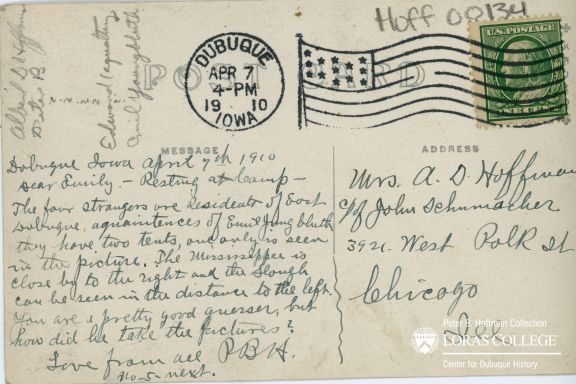 Hoff 00134
Albert D Hoffman
Peter B.
Edward equating
Emil Youngbluth
POST CARD
DUBUQUE
APR 7
4-PM
1910
IOWA
U.S. POSTAGE
MESSAGE
Dubuque Iowa april 7th 1910
Dear Emily. - Resting at Camp -
The four strangers are residents of East
Dubuque, aquaintences of Emil Jungbluth
they have two tents, one only is seen
in the picture. The Mississippi is
close by to the right and the Slough
can be seen in the distance to the left.
You are a pretty good guesser, but
how did he take the pictures?
Love from all P.B.H.
No-5-next.
ADDRESS
Mrs. A. D. Hoffman
c/o John Schumacher
3921 West Polk St
Chicago
Ill
Peter B. Hoffman Collection
LORAS COLLEGE
Center for Dubuque History